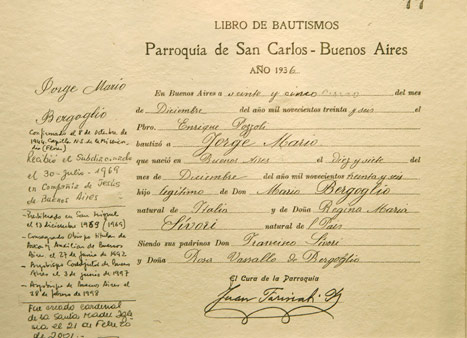 LIBRO DE BAUTISMOS
Parroquia de San Carlos - Buenos Aires
AÑO 1936
En Buenos Aires a veinte y cinco del mes
de Diciembre del año mil novecientos treinta y seis el
Pbro. Enrique Pozzoli
bautizó a Jorge Mario
que nació en Buenos Aires el diez y siete
de Diciembre del año mil novecientos treinta y seis
hijo legítimo de Don Mario Bergoglio
natural de Italia y de Doña Regina María
Sívori natural de l País
Siendo sus padrinos Don Francisco Sívori
y Doña Rosa Vassallo de Bergoglio
El Cura de la Parroquia
Jorge Mario
Bergoglio
Confirmado el 8 de octubre de
Recibió el Subdiaconado
el 30-julio-1969
en Compañía de Jesús
de Buenos Aires
en San Miguel
el 13 diciembre 1969 (1969)
Consagrado Obispo titular de
Auca y Auxiliar de Buenos
Aires el 27 de junio de 1992
Arzobispo Coadjutor de Buenos
Aires el 3 de junio de 1997
Arzobispo de Buenos Aires el
28 de febrero de 1998
Fue creado cardenal
de la Santa Madre Igle
sia el 21 de Febrero
de 2001.